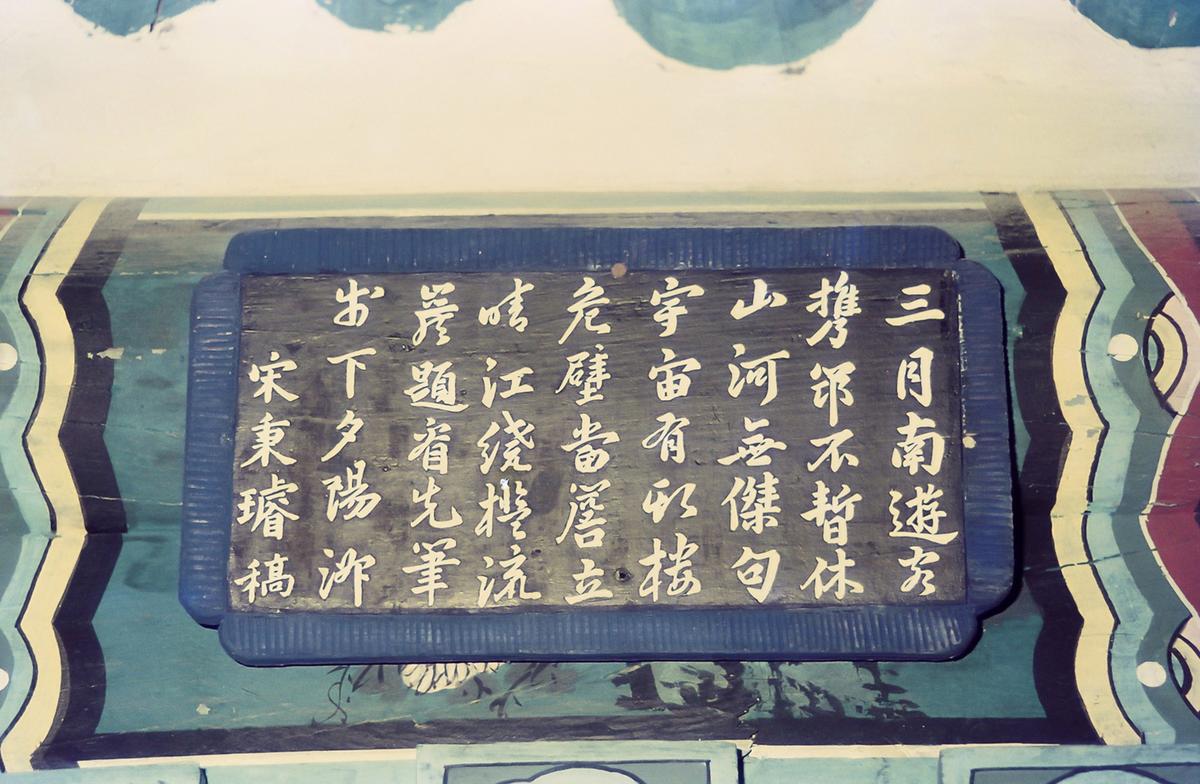 三月南遊客
携筇不暫休
山河無傑句
宇宙有樓
危壁當簷立
晴江繞檻流
巖題省先筆
步下夕陽洲
宋秉璿稿